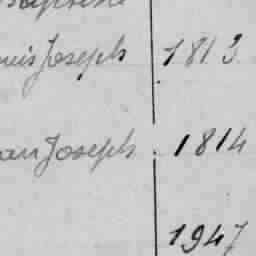 uis Joseph 1813
an Joseph 1814
1947